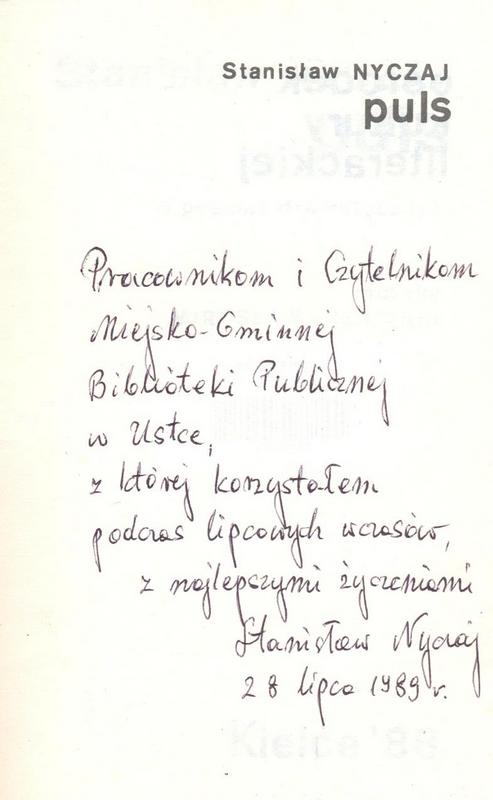 Stanisław NYCZAJ
puls
Pracownikom i Czytelnikom
Miejsko-Gminnej
Biblioteki Publicznej
w Ustce,
z której korzystałem
podczas lipcowych wczasów,
z najlepszymi życzeniami
Stanisław Nyczaj
28 lipca 1989 r.
Kielce '88